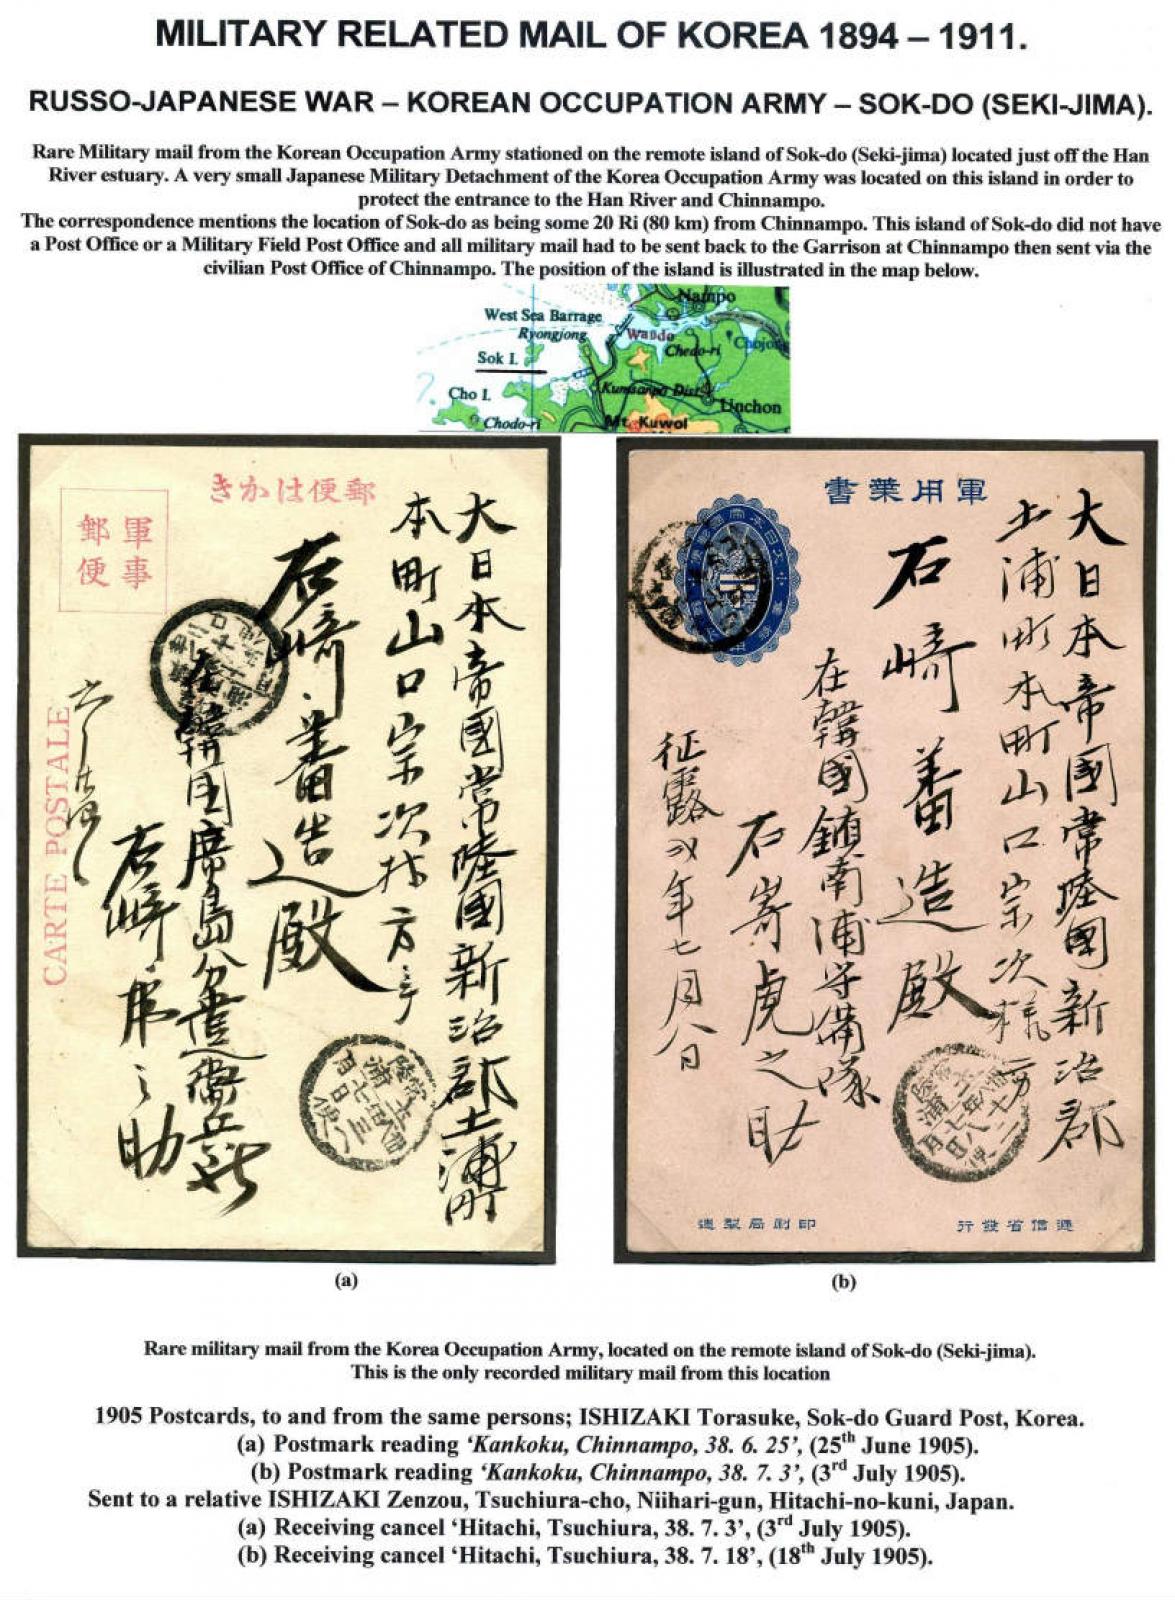 MILITARY RELATED MAIL OF KOREA 1894 – 1911.
RUSSO-JAPANESE WAR – KOREAN OCCUPATION ARMY – SOK-DO (SEKI-JIMA).
Rare Military mail from the Korean Occupation Army stationed on the remote island of Sok-do (Seki-jima) located just off the Han
River estuary. A very small Japanese Military Detachment of the Korea Occupation Army was located on this island in order to
protect the entrance to the Han River and Chinnampo.
The correspondence mentions the location of Sok-do as being some 20 Ri (80 km) from Chinnampo. This island of Sok-do did not have
a Post Office or a Military Field Post Office and all military mail had to be sent back to the Garrison at Chinnampo then sent via the
civilian Post Office of Chinnampo. The position of the island is illustrated in the map below.
Nampo
West Sea Barrage
Ryongjong
Wado
Chedo-ri
Sok I.
Cho I.
Kumsanpo Dist.
Unchon
Chodo-ri
Mt. Kuwol
郵便はかき
軍事
郵便
CARTE POSTALE
大日本帝國常陸國新治郡土浦町
本町山口宗次
石崎
殿
在韓国席島分遣
石崎
助
軍用葉書
大日本帝國常陸國新治郡
土浦町本町山口宗次様方
石崎善造殿
在韓國鎮南浦守備隊
石崎虎之助
征露
年七月八日
逓信省發行
印刷局製造
(a)
(b)
Rare military mail from the Korea Occupation Army, located on the remote island of Sok-do (Seki-jima).
This is the only recorded military mail from this location
1905 Postcards, to and from the same persons; ISHIZAKI Torasuke, Sok-do Guard Post, Korea.
(a) Postmark reading ‘Kankoku, Chinnampo, 38. 6. 25’, (25th June 1905).
(b) Postmark reading ‘Kankoku, Chinnampo, 38. 7. 3’, (3rd July 1905).
Sent to a relative ISHIZAKI Zenzou, Tsuchiura-cho, Niihari-gun, Hitachi-no-kuni, Japan.
(a) Receiving cancel ‘Hitachi, Tsuchiura, 38. 7. 3’, (3rd July 1905).
(b) Receiving cancel ‘Hitachi, Tsuchiura, 38. 7. 18’, (18th July 1905).